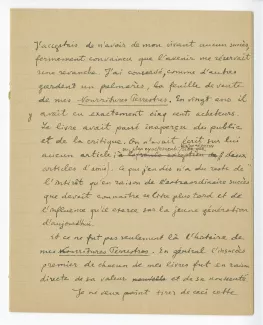 J'acceptais de n'avoir de mon vivant aucun succès,
fermement convaincu que l'avenir me réservait
une revanche. J'ai conservé, comme d'autres
gardent un palmarès, la feuille de vente
de mes Nourritures Terrestres. En vingt ans il
y avait eu exactement cinq cent acheteurs.
Le livre avait passé inaperçu du public
et de la critique. On n'avait écrit sur lui
aucun article; deux
articles d'amis). Ce que j'en dis n'a du reste de
l'intérêt qu'en raison de l'extraordinaire succès
que devait connaître ce livre plus tard et de
l'influence qu'il exerce sur la jeune génération
d'aujourd'hui.
Et ce ne fut pas seulement là l'histoire de
mes Nourritures Terrestres. En général l'insuccès
premier de chacun de mes livres fut en raison
directe de sa valeur et de sa nouveauté
Je ne veux point tirer de ceci cette